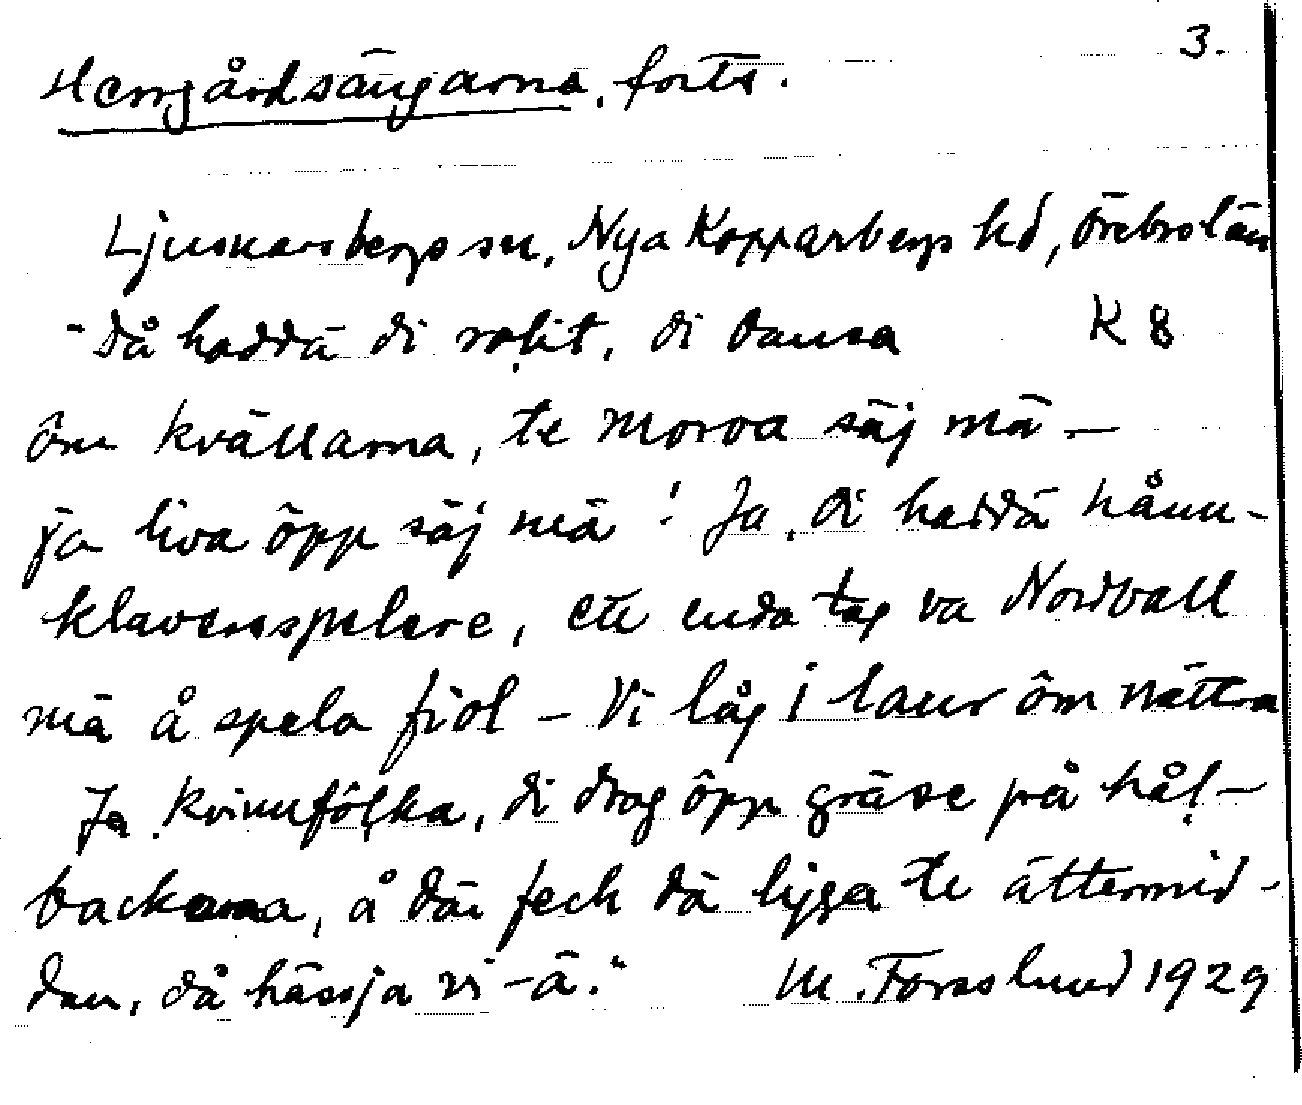 3.
Herrgårdsängarna, forts.
Ljusnarsbergs sn, Nya Kopparbergs hd, Örebro län
"Då haddä di rolit, di dansa K 8
ôm kvällarna, te moroa säj mä —
ja liva ôpp säj mä! Ja, di haddä hånn-
klaverspelare, ett enda tag va Nordvall
mä å spela fiol — Vi låg i laur ôm nättra
Ja kvinnfôlka, di drog ôpp gräse på hål-
backarna, å där feck dä ligga te ättermid-
dan, då hässja vi -ä." M. Forsslund 1929